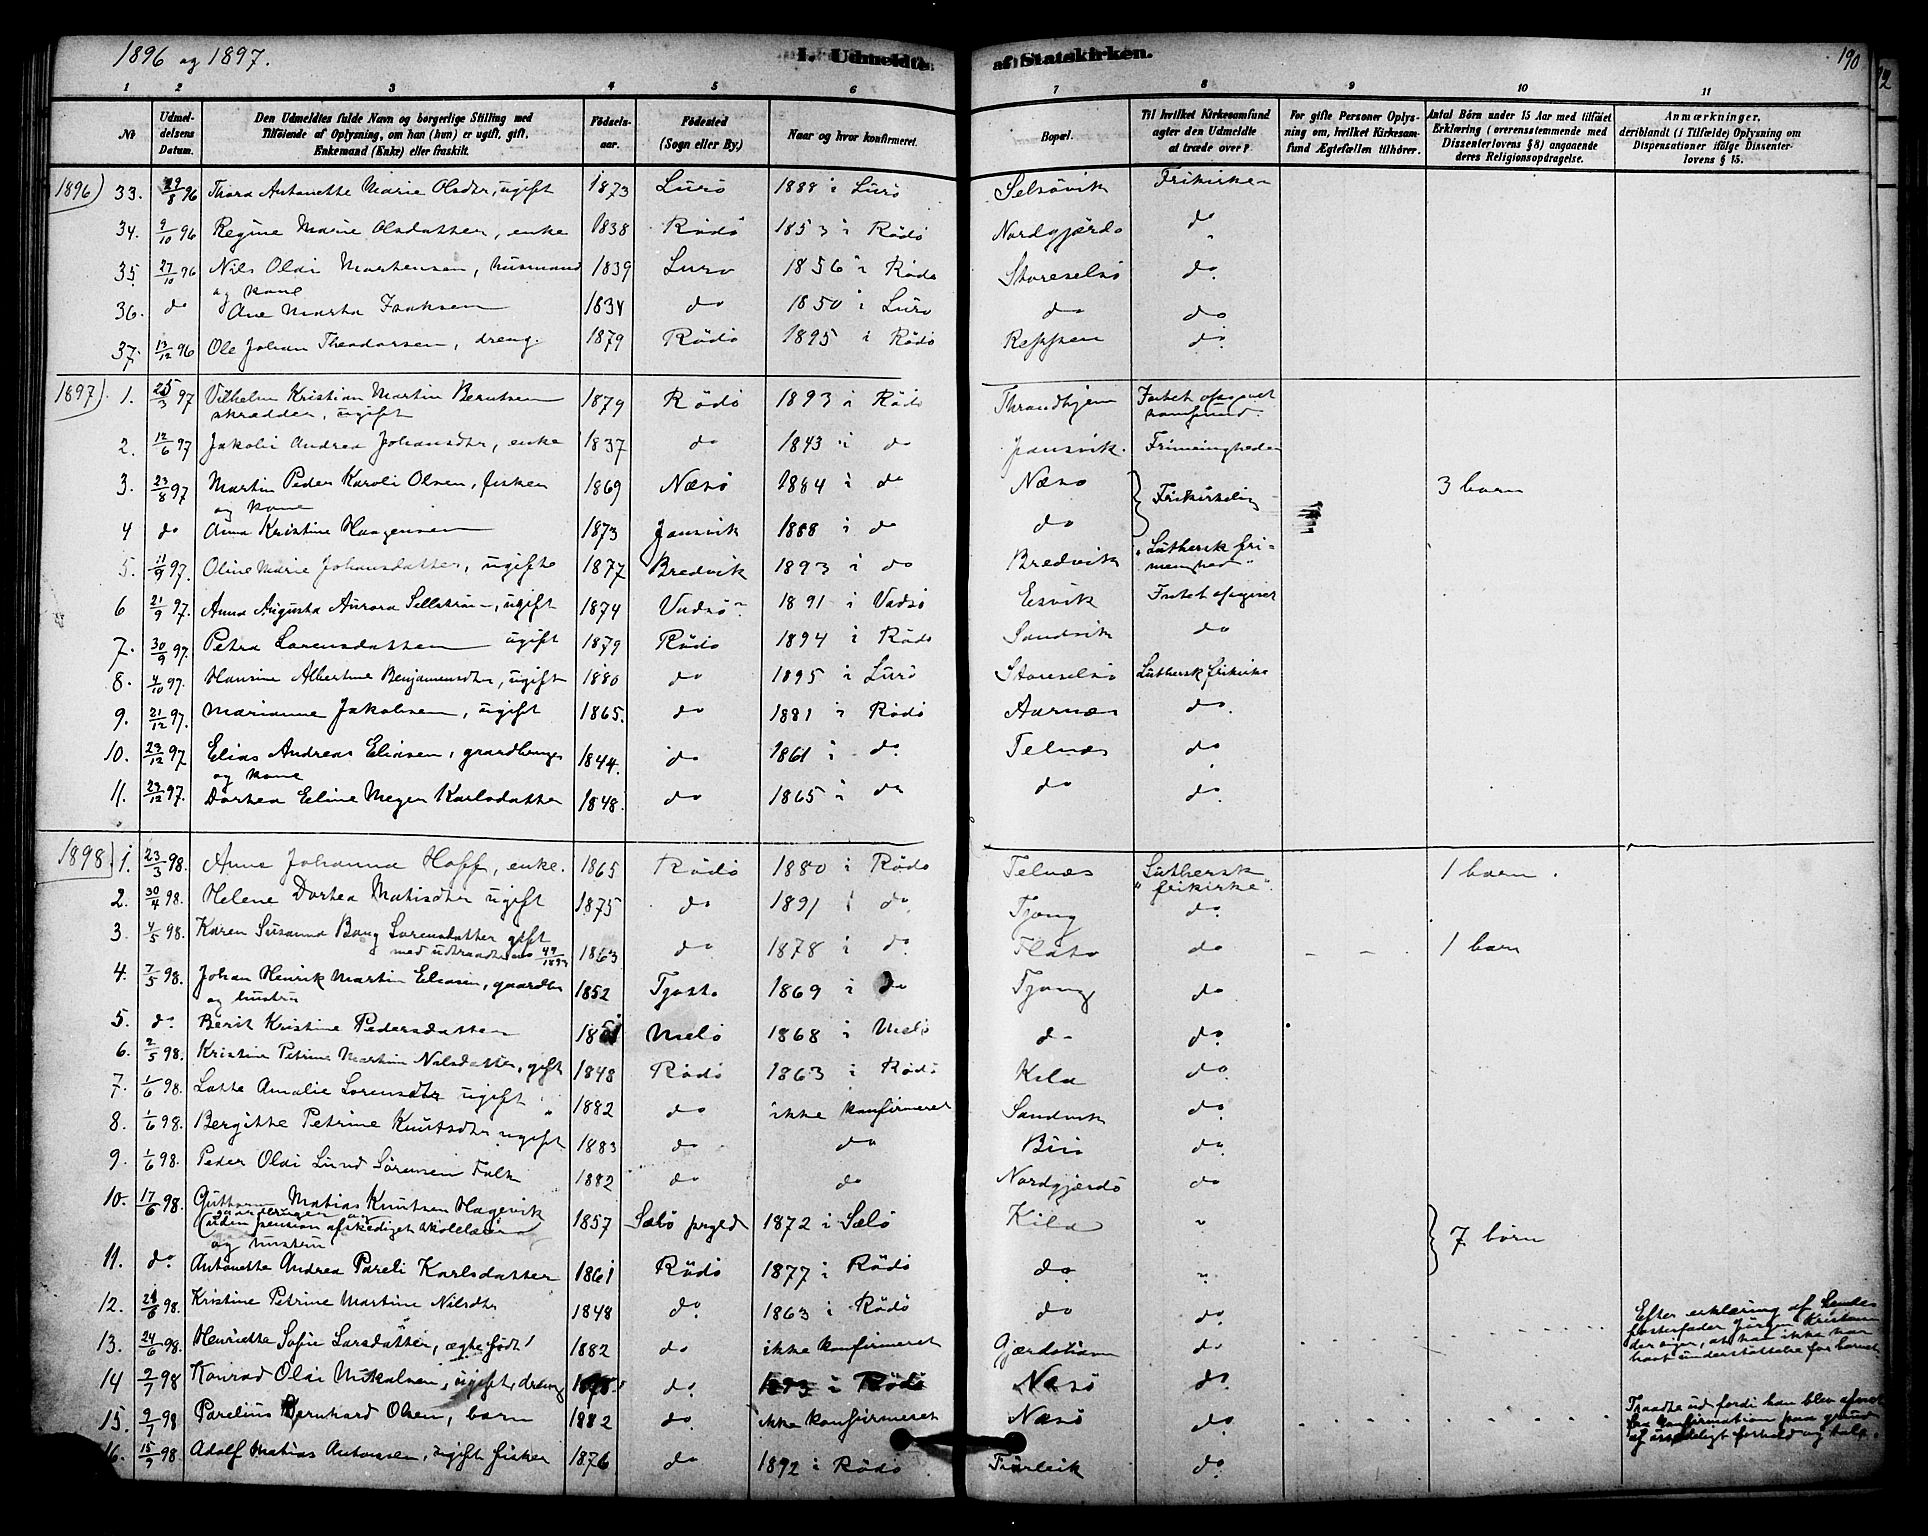 1896 og 1897.
I. Udmeldte af Statskirken.
190
1 2 3 4 5 6 7 8 9 10 11
No
Udmeldelsens Datum.
Den Udmeldtes fulde Navn og borgerlige Stilling med
Tilføiende af Oplysning, om han (hun) er ugift, gift,
Enkemand (Enke) eller fraskilt.
Fødselsaar.
Fødested
(Sogn eller By.)
Naar og hvor konfirmeret.
Bopæl.
Til hvilket Kirkesamfund
agter den Udmeldte
at træde over?
For gifte Personer Oplysning
om, hvilket Kirkesamfund
Ægtefællen tilhører.
Antal Børn under 15 Aar med tilføiet
Erklæring (overensstemmende med
Dissenterlovens § 8) angaaende
deres Religionsopdragelse.
Anmærkninger,
deriblandt (i Tilfælde) Oplysning om
Dispensationer ifølge Dissenterlovens § 15.
1896) 33. 29/8 96 Thora Antonette Marie Olsdtr, ugift 1873 Lurö 1888 i Lurö Selsövik Frikirken
34. 9/10 96 Regine Marie Olsdatter, enke 1838 Rödö 1853 i Rödö Nordgjærdö do
35. 27/10 96 Nils Oldi Mortensen, husmand 1839 Lurö 1856 i Rödö Storeselsö do
og kone
36. do Ane Marta Isaksen 1834 do 1850 i Lurö do do
37. 13/12 96 Ole Johan Theodorsen, dreng. 1879 Rödö 1895 i Rödö Reppen do
1897). 1. 25/3 97 Vilhelm Kristian Martin Berntsen 1879 Rödö 1893 i Rödö Throndhjem Intet opgivet
skrædder, ugift samfund
2. 12/6 97 Jakobi Andrea Johansdtr, enke 1837 do 1843 i do Jansvik. Frimenigheden
3. 23/8 97 Martin Peder Karoli Olsen, fisker 1869 Næsö 1884 i do Næsö 3 barn
og kone
4 do Anna Kristine Haagensen 1873 Jansvik 1888 i do do
5. 11/9 97. Oline Marie Johansdatter, ugifte 1877 Bredvik 1893 i do Bredvik "Luthersk frimenighed"
6 21/9 97. Anna Augusta Aurora Sellström, ugift 1874 Vadsö 1891 i Vadsö Esvik Intet opgivet
7. 30/9 97. Petra Lorensdatter ugift 1879 Rödö 1894 i Rödö Sandvik do
8. 4/10 97. Hansine Albertine Benjaminsdtr, ugift 1880 do 1895 i Lurö Storeselsö Luthersk frikirke
9. 21/12 97. Marianne Jakobsen, ugift 1865. do 1881 i Rödö Aarnæs do.
10. 23/12 97 Elias Andreas Eliasen, gaardbruger 1844. do 1861 i do Telnæs do
og kone
11. 23/12 97. Dorthea Eline Meyer Karlsdatter 1848. do 1865 i do do do
1898) 1. 23/3 98. Anne Johanna Hoff, enke. 1865 Rödö 1880 i Rödö Telnæs Luthersk 1 barn.
"frikirke".
2. 30/4 98. Helene Dortea Matisdtr ugift 1875 do 1891 i do Tjong do
3. 4/5 98. Karen Susanna Bang Lorensdatter gift 1863 do 1878 i do Flatö do - - 1 barn
4. 7/5 98. Johan Henrik Martin Eliasen, gaardbr 1852 Tjotta 1869 i do Tjong do
og hustru
5. do Berit Kristine Pedersdatter Melö 1868 i Melö do do
6. 2/5 98. Kristine Petrine Martine Nilsdatter, gift 1848 Rödö 1863 i Rödö Kila do
7. 1/6 98. Lotte Amalie Lorensdtr ugift 1882 do ikke konfirmeret Sandvik do
8. 1/6 98. Bergitte Petrine Knutsdtr ugift 1883 do do Bisö do
9. 1/6 98. Peder Oldi Lund Sörensen Falk 1882 do do Nordgjerdö do
10. 17/6 98. Guttorm Matias Knutsen Hagevik 1857 Sælö prgd 1872 i Sælö Kila "
(uden pension afskediget skolelærer) 7 börn
og hustru
11. do Antonette Andrea Pareli Karlsdatter 1861 Rödö 1877 i Rödö do "
12. 24/6 98. Kristine Petrine Martine Nilsdtr 1848 do 1863 i Rödö do do
13. 24/6 98. Henriette Sofie Larsdatter, ægte født 1882 do ikke konfirmeret Gjærdstuen do
Efter erklæring af hendes
fosterfader Jörgen Kristensen
der siger, at han ikke har
havt understöttelse for barnet
14 2/7 98 Konrad Oldi Mikalsen, ugift, dreng do 1893 i Rödö Næsö do
15. 9/7 98 Parelius Bernhard Olsen, barn 1882 do ikke konfirmeret Næsö do
Traadte ud fordi han blev afvist
fra konfirmation paa grund
af forhold og
16. 15/9 98. Adolf Matias Antonsen, ugift fisker 1876 do 1892 i Rödö do